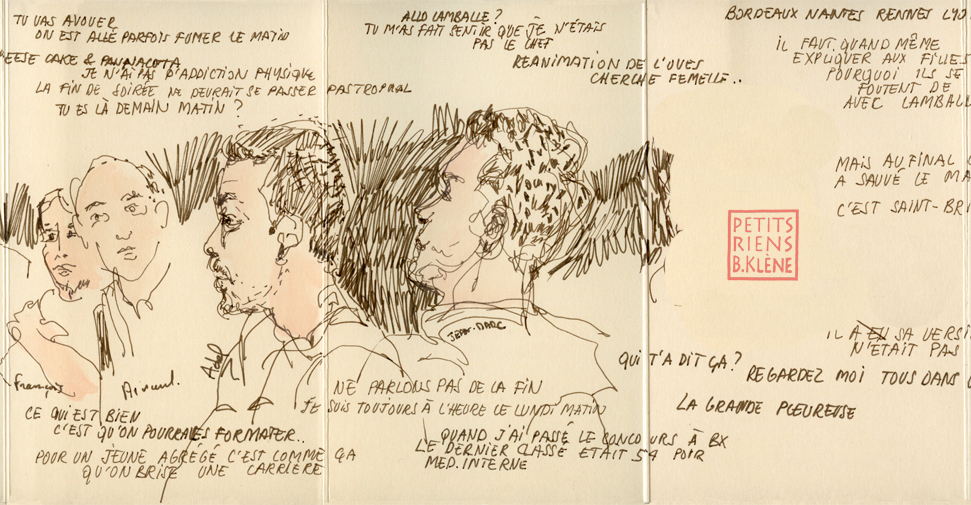 TU VAS AVOUER
ON EST ALLÉ PARFOIS FUMER LE MATIN
EESE CAKE & PANNACOTTA
JE N'AI PAS D'ADDICTION PHYSIQUE
LA FIN DE SOIRÉE NE DEVRAIT SE PASSER
TU ES LÀ DEMAIN MATIN ?
ALLO LAMBALLE ?
TU M'AS FAIT SENTIR QUE JE N'ÉTAIS
PAS LE CHEF
REANIMATION DE L'OUVES
CHERCHE FEMELLE..
BORDEAUX NANTES RENNES LYO
IL FAUT QUAND MÊME
EXPLIQUER AUX FILLES
POURQUOI ILS SE
FOUTENT DE
AVEC LAMBALL
MAIS AU FINAL
A SAUVÉ LE MA
C'EST SAINT-BRI
PETITS
RIENS
B.KLÈNE
IL A EU SA VERSI
N'ÉTAIT PAS
QUI T'A DIT ÇA ?
REGARDEZ MOI TOUS DANS
LA GRANDE PLEUREUSE
JEAN-MARC
François
Arnaud.
CE QUI EST BIEN
C'EST QU'ON POURRA LES FORMATER..
POUR UN JEUNE AGRÉGÉ C'EST COMME ÇA
QU'ON BRISE UNE CARRIÈRE
NE PARLONS PAS DE LA FIN
JE SUIS TOUJOURS À L'HEURE LE LUNDI MATIN
QUAND J'AI PASSÉ LE CONCOURS À BX
LE DERNIER CLASSÉ ETAIT 54 POUR
MED. INTERNE